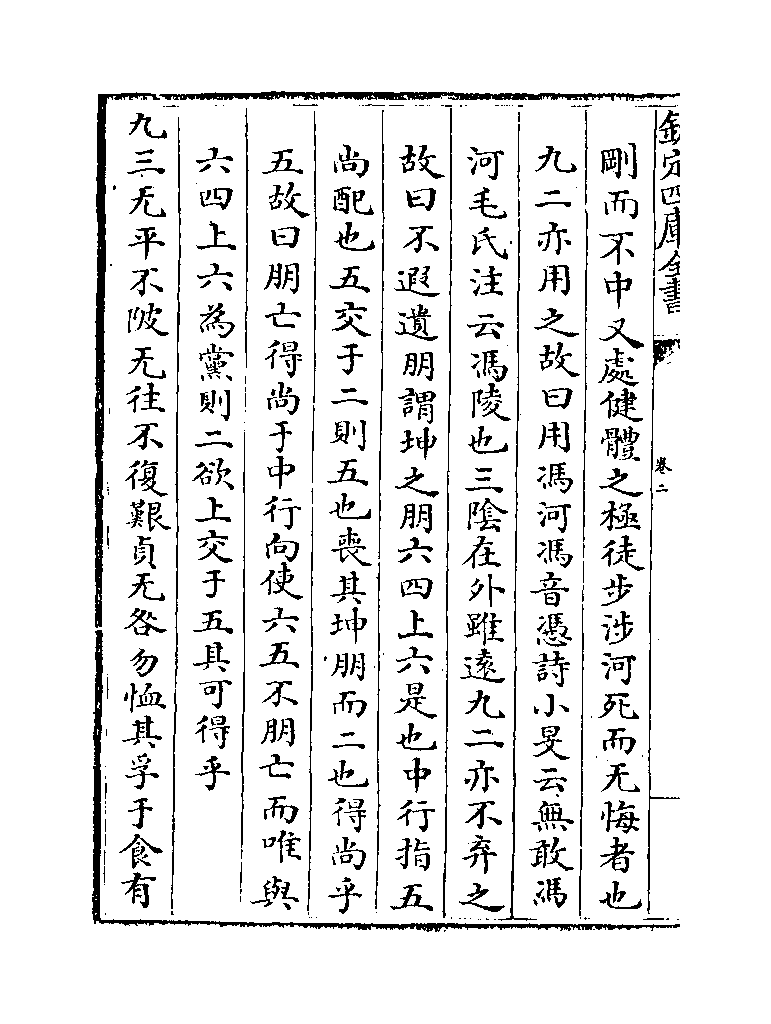 欽定四庫全書
卷二
剛而不中又處健體之極徒步涉河死而无悔者也
九二亦用之故曰用馮河馮音憑詩小旻云無敢馮
河毛氏注云馮陵也三陰在外雖遠九二亦不弃之
故曰不遐遺朋謂坤之朋六四上六是也中行指五
尚配也五交于二則五也喪其坤朋而二也得尚乎
五故曰朋亡得尚于中行向使六五不朋亡而唯與
六四上六為黨則二欲上交于五其可得乎
九三无平不陂无往不復艱貞无咎勿恤其孚于食有